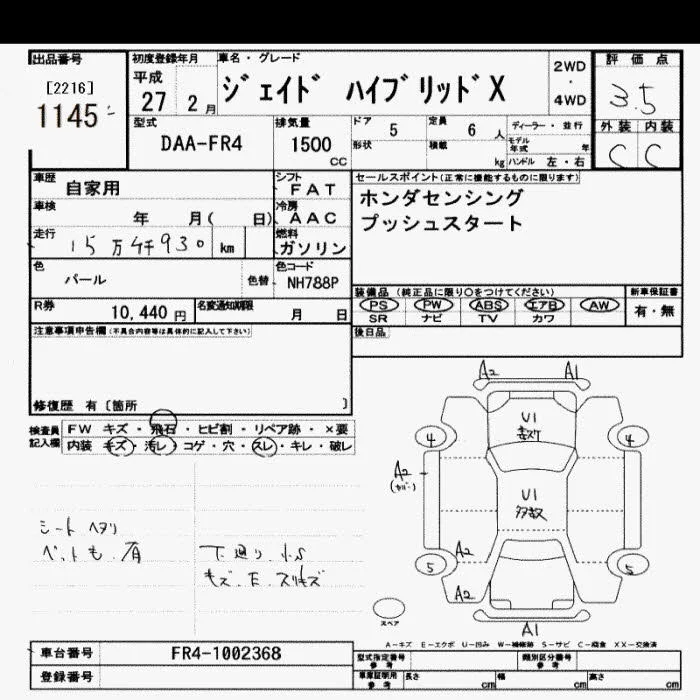 出品番号
[2216]
1145
初度登録年月
平成
27 2月
車名・グレード
ジェイド ハイブリッドX
2WD
・
4WD
評価点
3.5
型式
DAA-FR4
排気量
1500
CC
ドア 5
定員 6 人
形状
積載 kg
ディーラー・並行
モデル年式 年
ハンドル 左・右
外装 内装
C C
車歴
自家用
シフト
FAT
車検
年 月( 日)
冷房
AAC
走行
15万4千930 km
燃料
ガソリン
色
パール
色替
色コード
NH788P
R券
10,440 円
名変通知期限
月 日
セールスポイント(正常に機能するものに限ります)
ホンダセンシング
プッシュスタート
装備品(純正品に限り○をつけてください)
PS PW ABS エアB AW
SR ナビ TV カワ
新車保証書
有・無
後日品
注意事項申告欄(不具合内容等は具体的に記入して下さい)
修復歴 有〔箇所 〕
検査員記入欄
FW キズ・飛石・ヒビ割・リペア跡・×要
内装 キズ・汚レ・コゲ・穴・スレ・キレ・破レ
シートヘタリ
ペットも有
下廻り小S
キズ.E.スリキズ
A2 A1
U1
4 4
A2
(カバー)
U1
多数
A2
5 5
A2
スペア
A1
A-キズ E-エクボ U-凹み W-補修跡 S-サビ C-腐食 XX-交換済
車台番号
FR4-1002368
登録番号
型式指定番号
参考
類別区分番号
参考
車庫証明用
参考
長さ cm 幅 cm 高さ cm